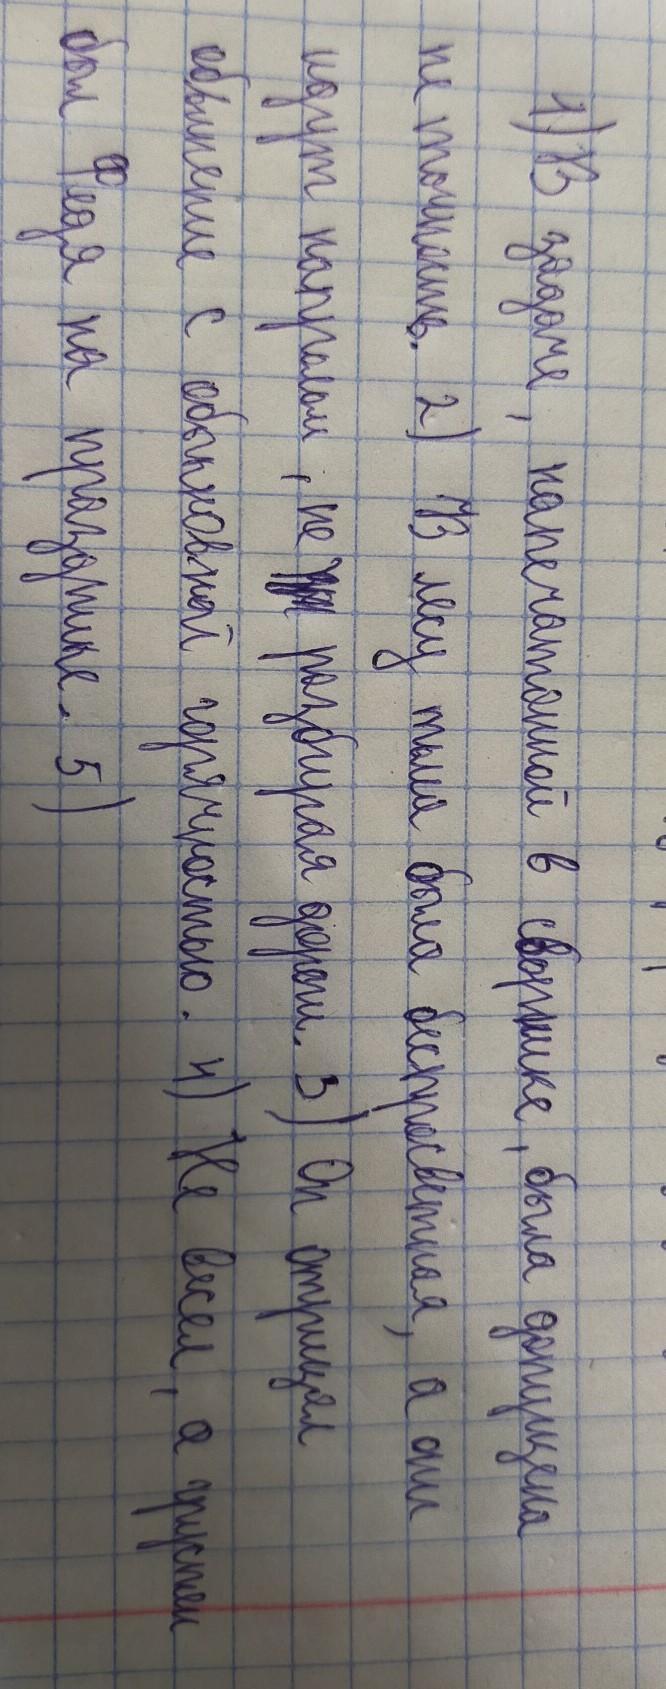 1) В задаче, напечатанной в сборнике, была допущена
не точность. 2) В лесу тьма была беспросветная, а они
идут напролом, не разбирая дороги. 3) Он отрицал
обвинение с обыкновеной горячностью. 4) Не весел, а грустен
был Федя на празднике. 5)